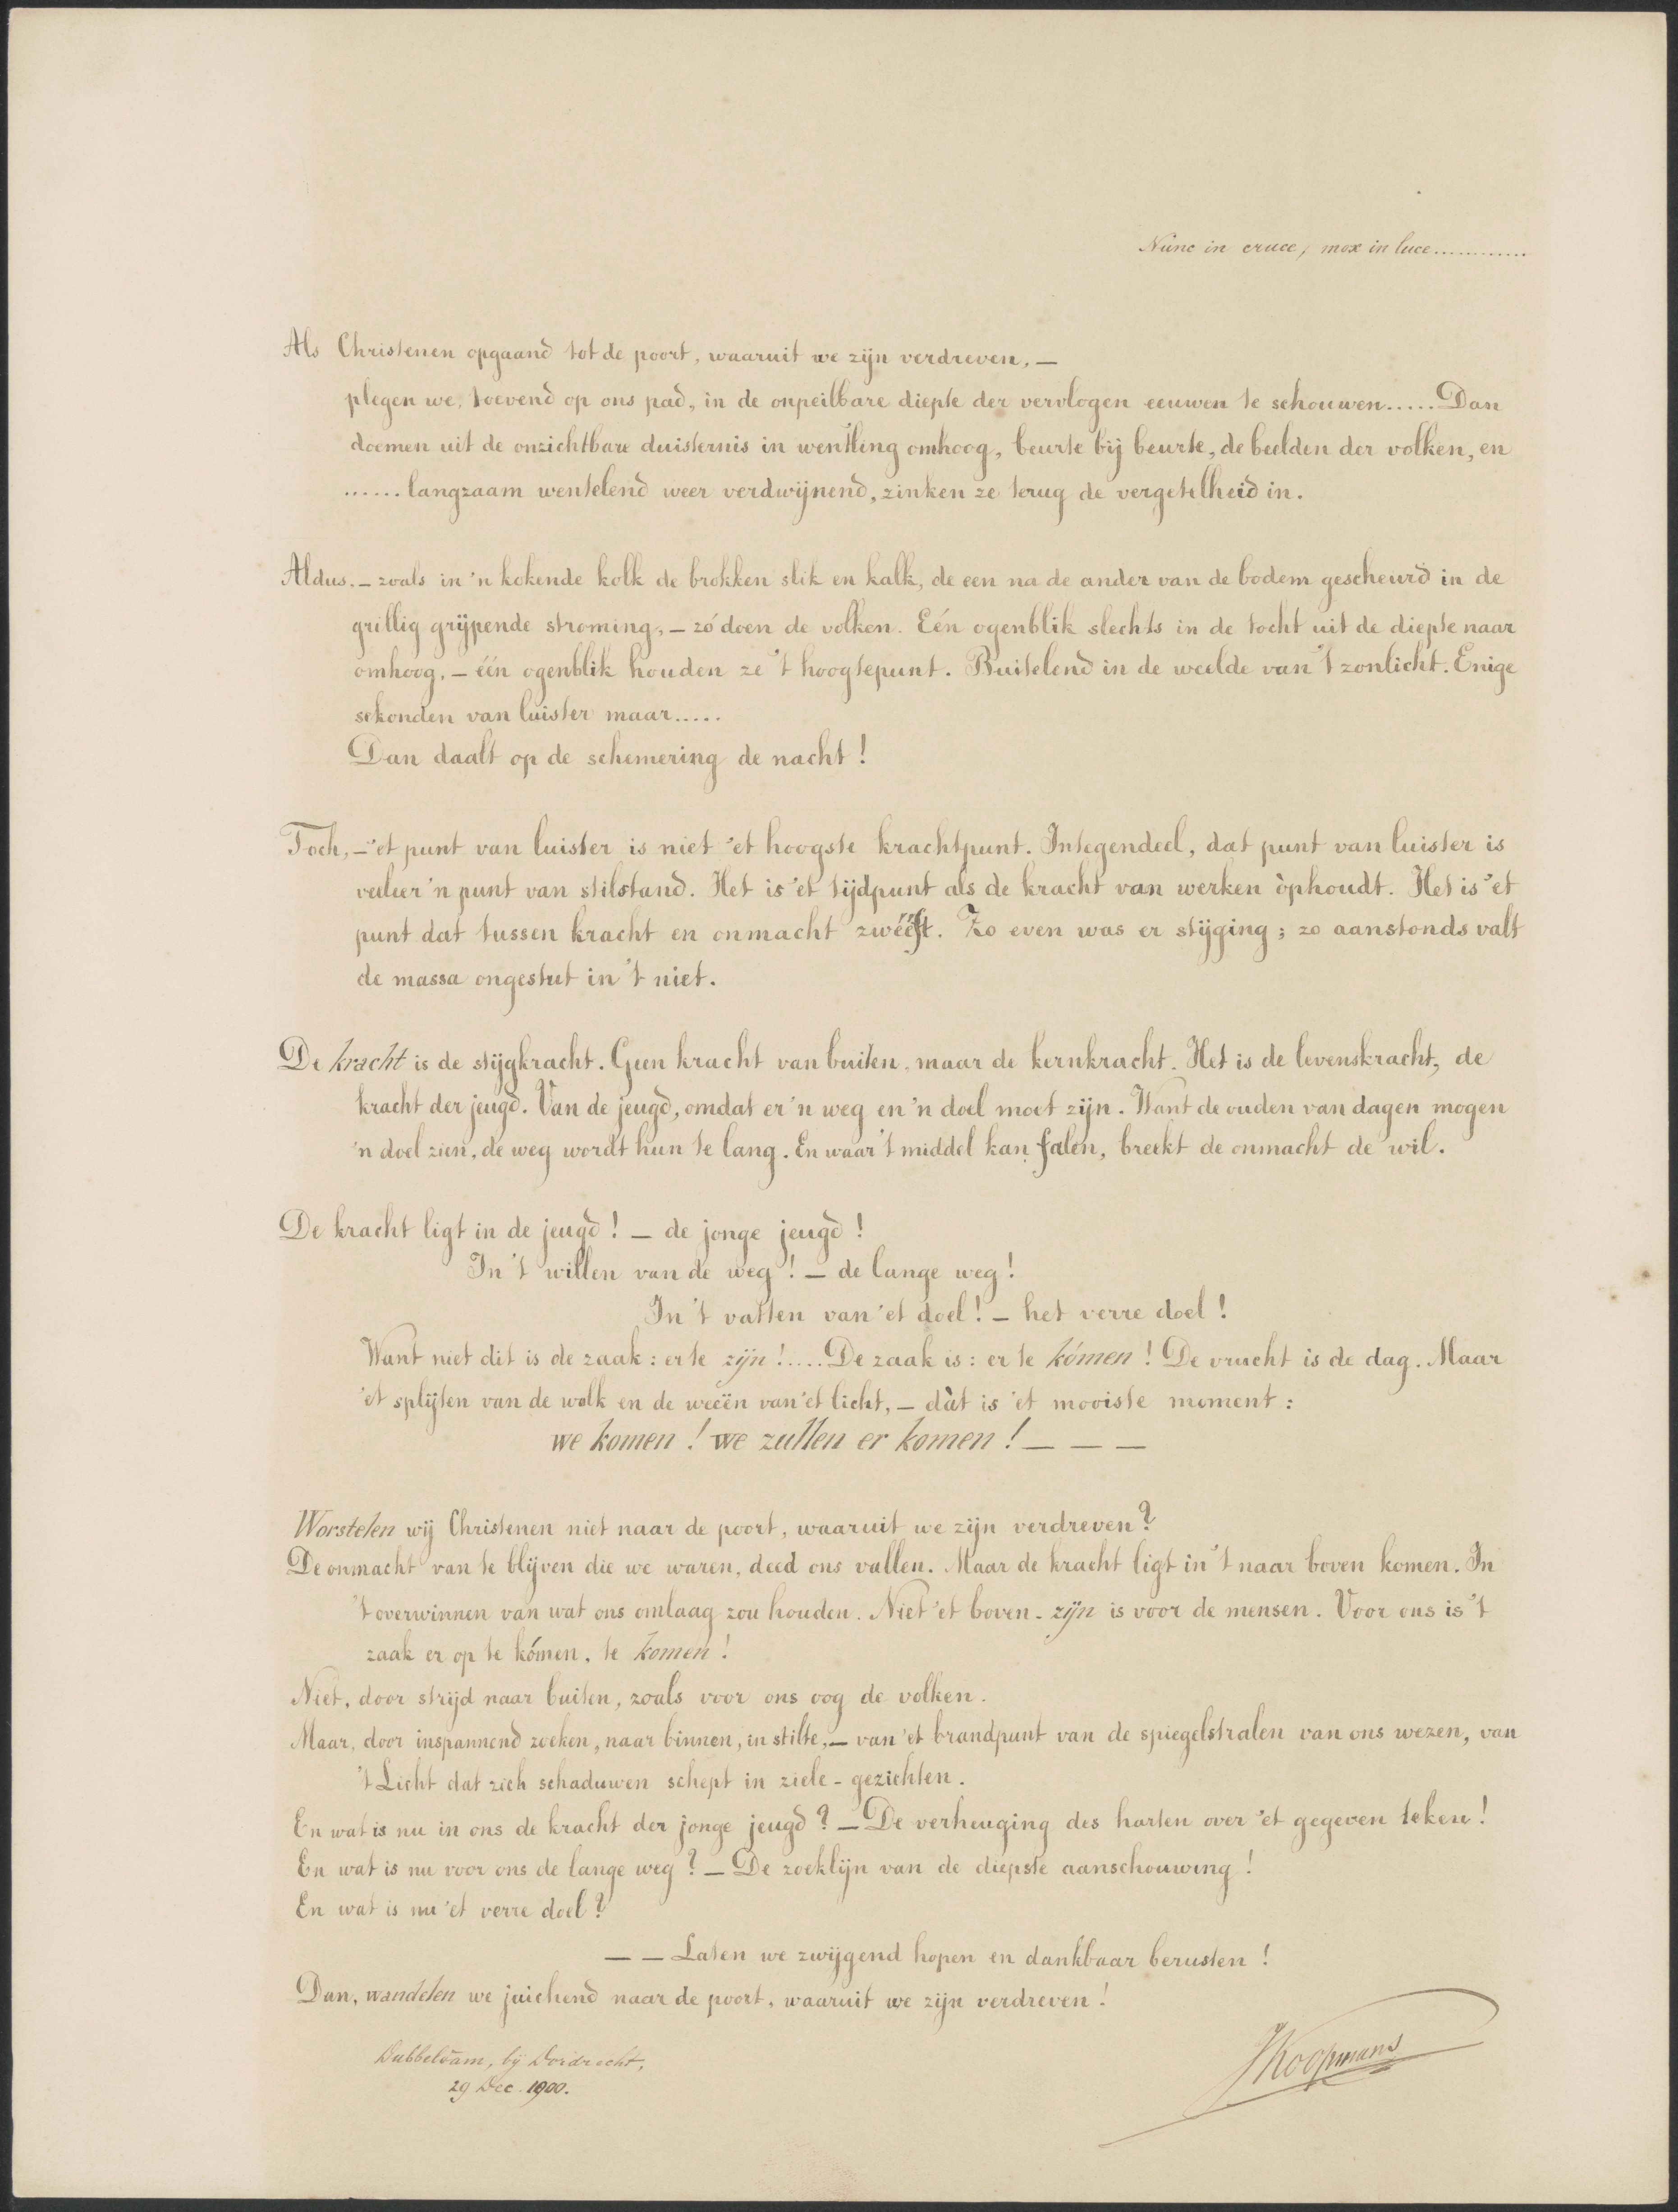 Nunc in cruce, mox in luce............
Als Christenen opgaand tot de poort, waaruit we zijn verdreven, —
plegen we, toevend op ons pad, in de onpeilbare diepte der vervlogen eeuwen te schouwen..... Dan
doemen uit de onzichtbare duisternis in wenteling omhoog, beurte bij beurte, de beelden der volken, en
...... langzaam wentelend weer verdwijnend, zinken ze terug de vergetelheid in.
Aldus. — zoals in 'n kokende kolk de brokken slik en kalk, de een na de ander van de bodem gescheurd in de
grillig grijpende stroming, — zó doen de volken. Eén ogenblik slechts in de tocht uit de diepte naar
omhoog, — één ogenblik houden ze 't hoogtepunt. Buitelend in de weelde van 't zonlicht. Enige
sekonden van luister maar.....
Dan daalt op de schemering de nacht!
Toch, — 'et punt van luister is niet 'et hoogste krachtpunt. Integendeel, dat punt van luister is
veeleer 'n punt van stilstand. Het is 'et tijdpunt als de kracht van werken òphoudt. Het is 'et
punt dat tussen kracht en onmacht zwééft. Zo even was er stijging; zo aanstonds valt
de massa ongestut in 't niet.
De kracht is de stijgkracht. Geen kracht van buiten, maar de kernkracht. Het is de levenskracht, de
kracht der jeugd. Van de jeugd, omdat er 'n weg en 'n doel moet zijn. Want de ouden van dagen mogen
'n doel zien, de weg wordt hun te lang. En waar 't middel kan falen, breekt de onmacht de wil.
De kracht ligt in de jeugd! — de jonge jeugd!
In 't willen van de weg! — de lange weg!
In 't vatten van 'et doel! — het verre doel!
Want niet dit is de zaak: er te zijn!.... De zaak is: er te kómen! De vrucht is de dag. Maar
'et splijten van de wolk en de weeën van 'et licht, — dàt is 'et mooiste moment:
we komen! we zullen er komen! — — —
Worstelen wij Christenen niet naar de poort, waaruit we zijn verdreven?
De onmacht van te blijven die we waren, deed ons vallen. Maar de kracht ligt in 't naar boven komen. In
't overwinnen van wat ons omlaag zou houden. Niet 'et boven-zijn is voor de mensen. Voor ons is 't
zaak er op te kómen, te komen!
Niet, door strijd naar buiten, zoals voor ons oog de volken.
Maar, door inspannend zoeken, naar binnen, in stilte, — van 'et brandpunt van de spiegelstralen van ons wezen, van
't Licht dat zich schaduwen schept in ziele-gezichten.
En wat is nu in ons de kracht der jonge jeugd? — De verheuging des harten over 'et gegeven teken!
En wat is nu voor ons de lange weg? — De zoeklijn van de diepste aanschouwing!
En wat is nu 'et verre doel?
— — Laten we zwijgend hopen en dankbaar berusten!
Dan, wandelen we juichend naar de poort, waaruit we zijn verdreven!
Dubbeldam, bij Dordrecht,
29 Dec. 1900.
JKoopmans